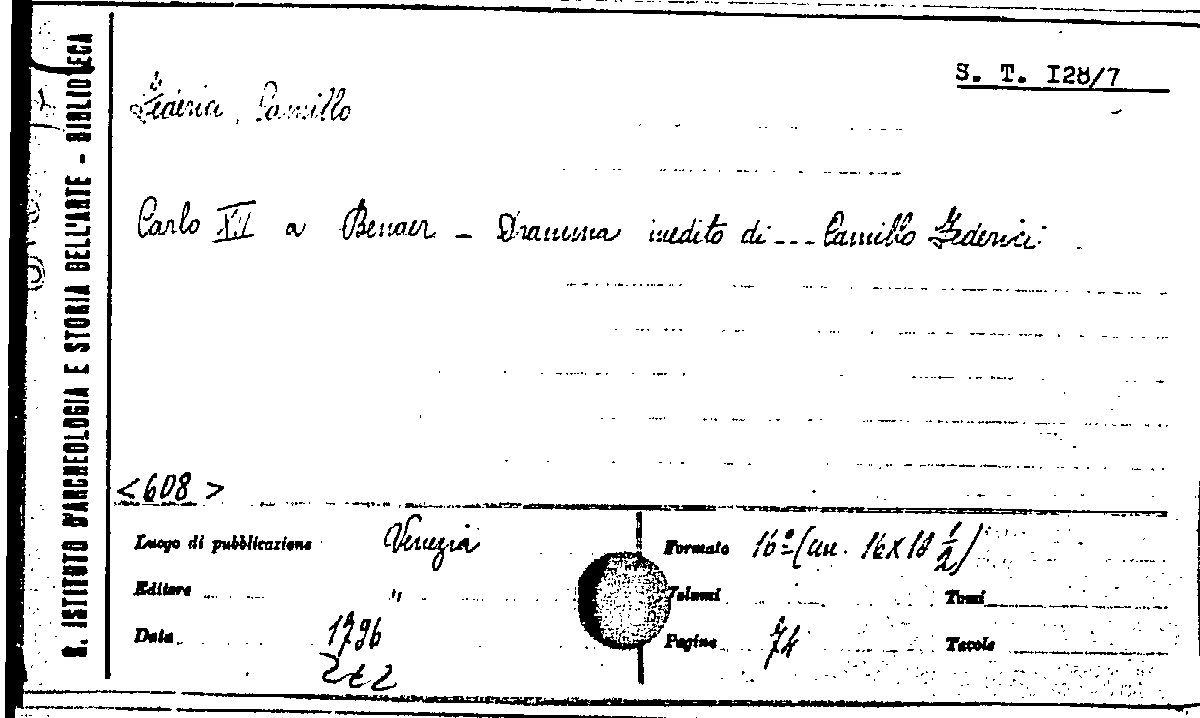 R. ISTITUTO D'ARCHEOLOGIA E STORIA DELL'ARTE - BIBLIOTECA
S. T. I28/7
Federici, Camillo
Carlo XII a Bender - Dramma inedito di... Camillo Federici
<608>
Luogo di pubblicazione Venezia
Formato 16º (cm. 16x18 1/2)
Editore "
Volumi
Tomi
Data 1796
Pagine 74
Tavole